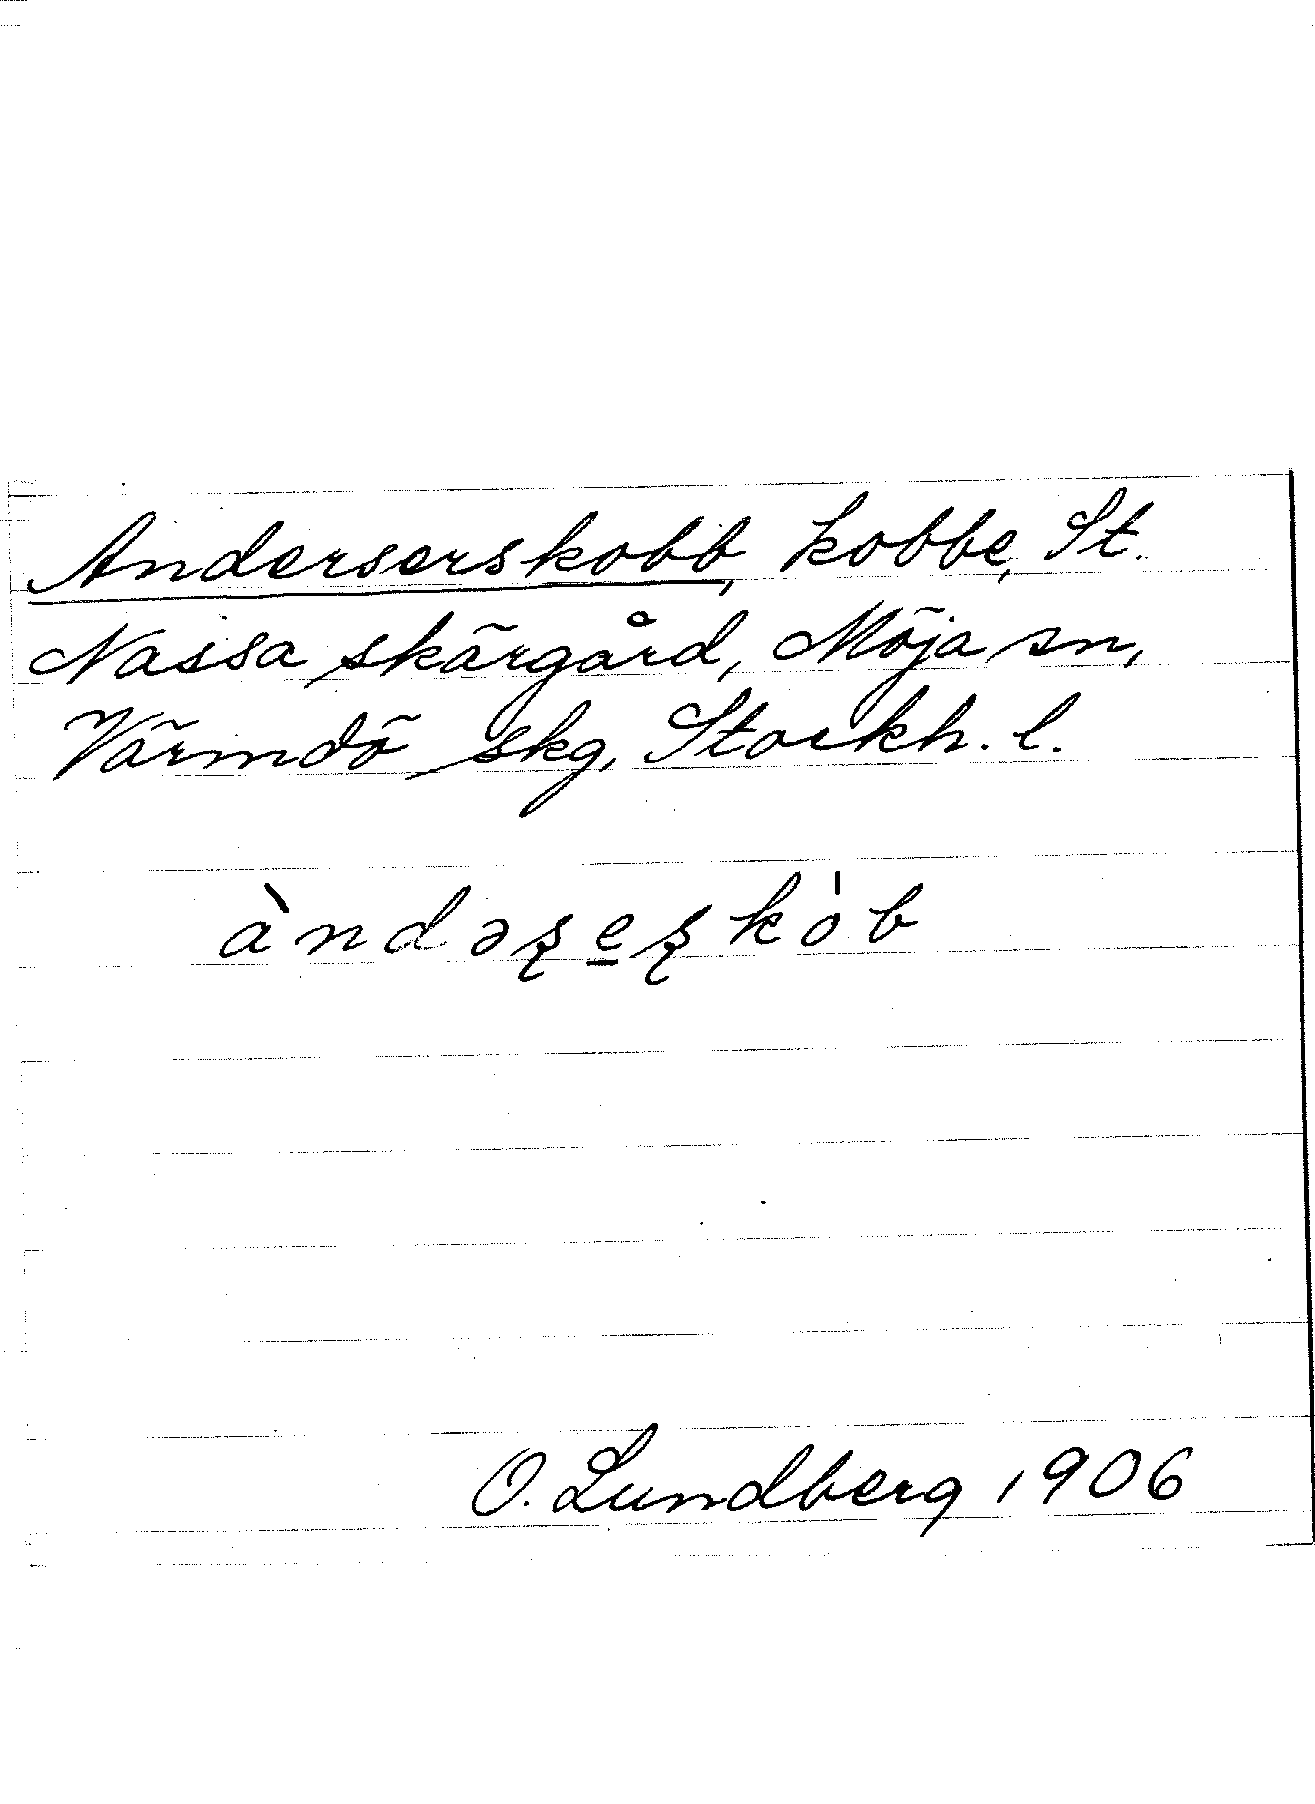 Anderserskobb, kobbe, St.
Nassa skärgård, Möja sn,
Värmdö skg, Stockh. l.
àndəʂe̲ʂkòb
O. Lundberg 1906